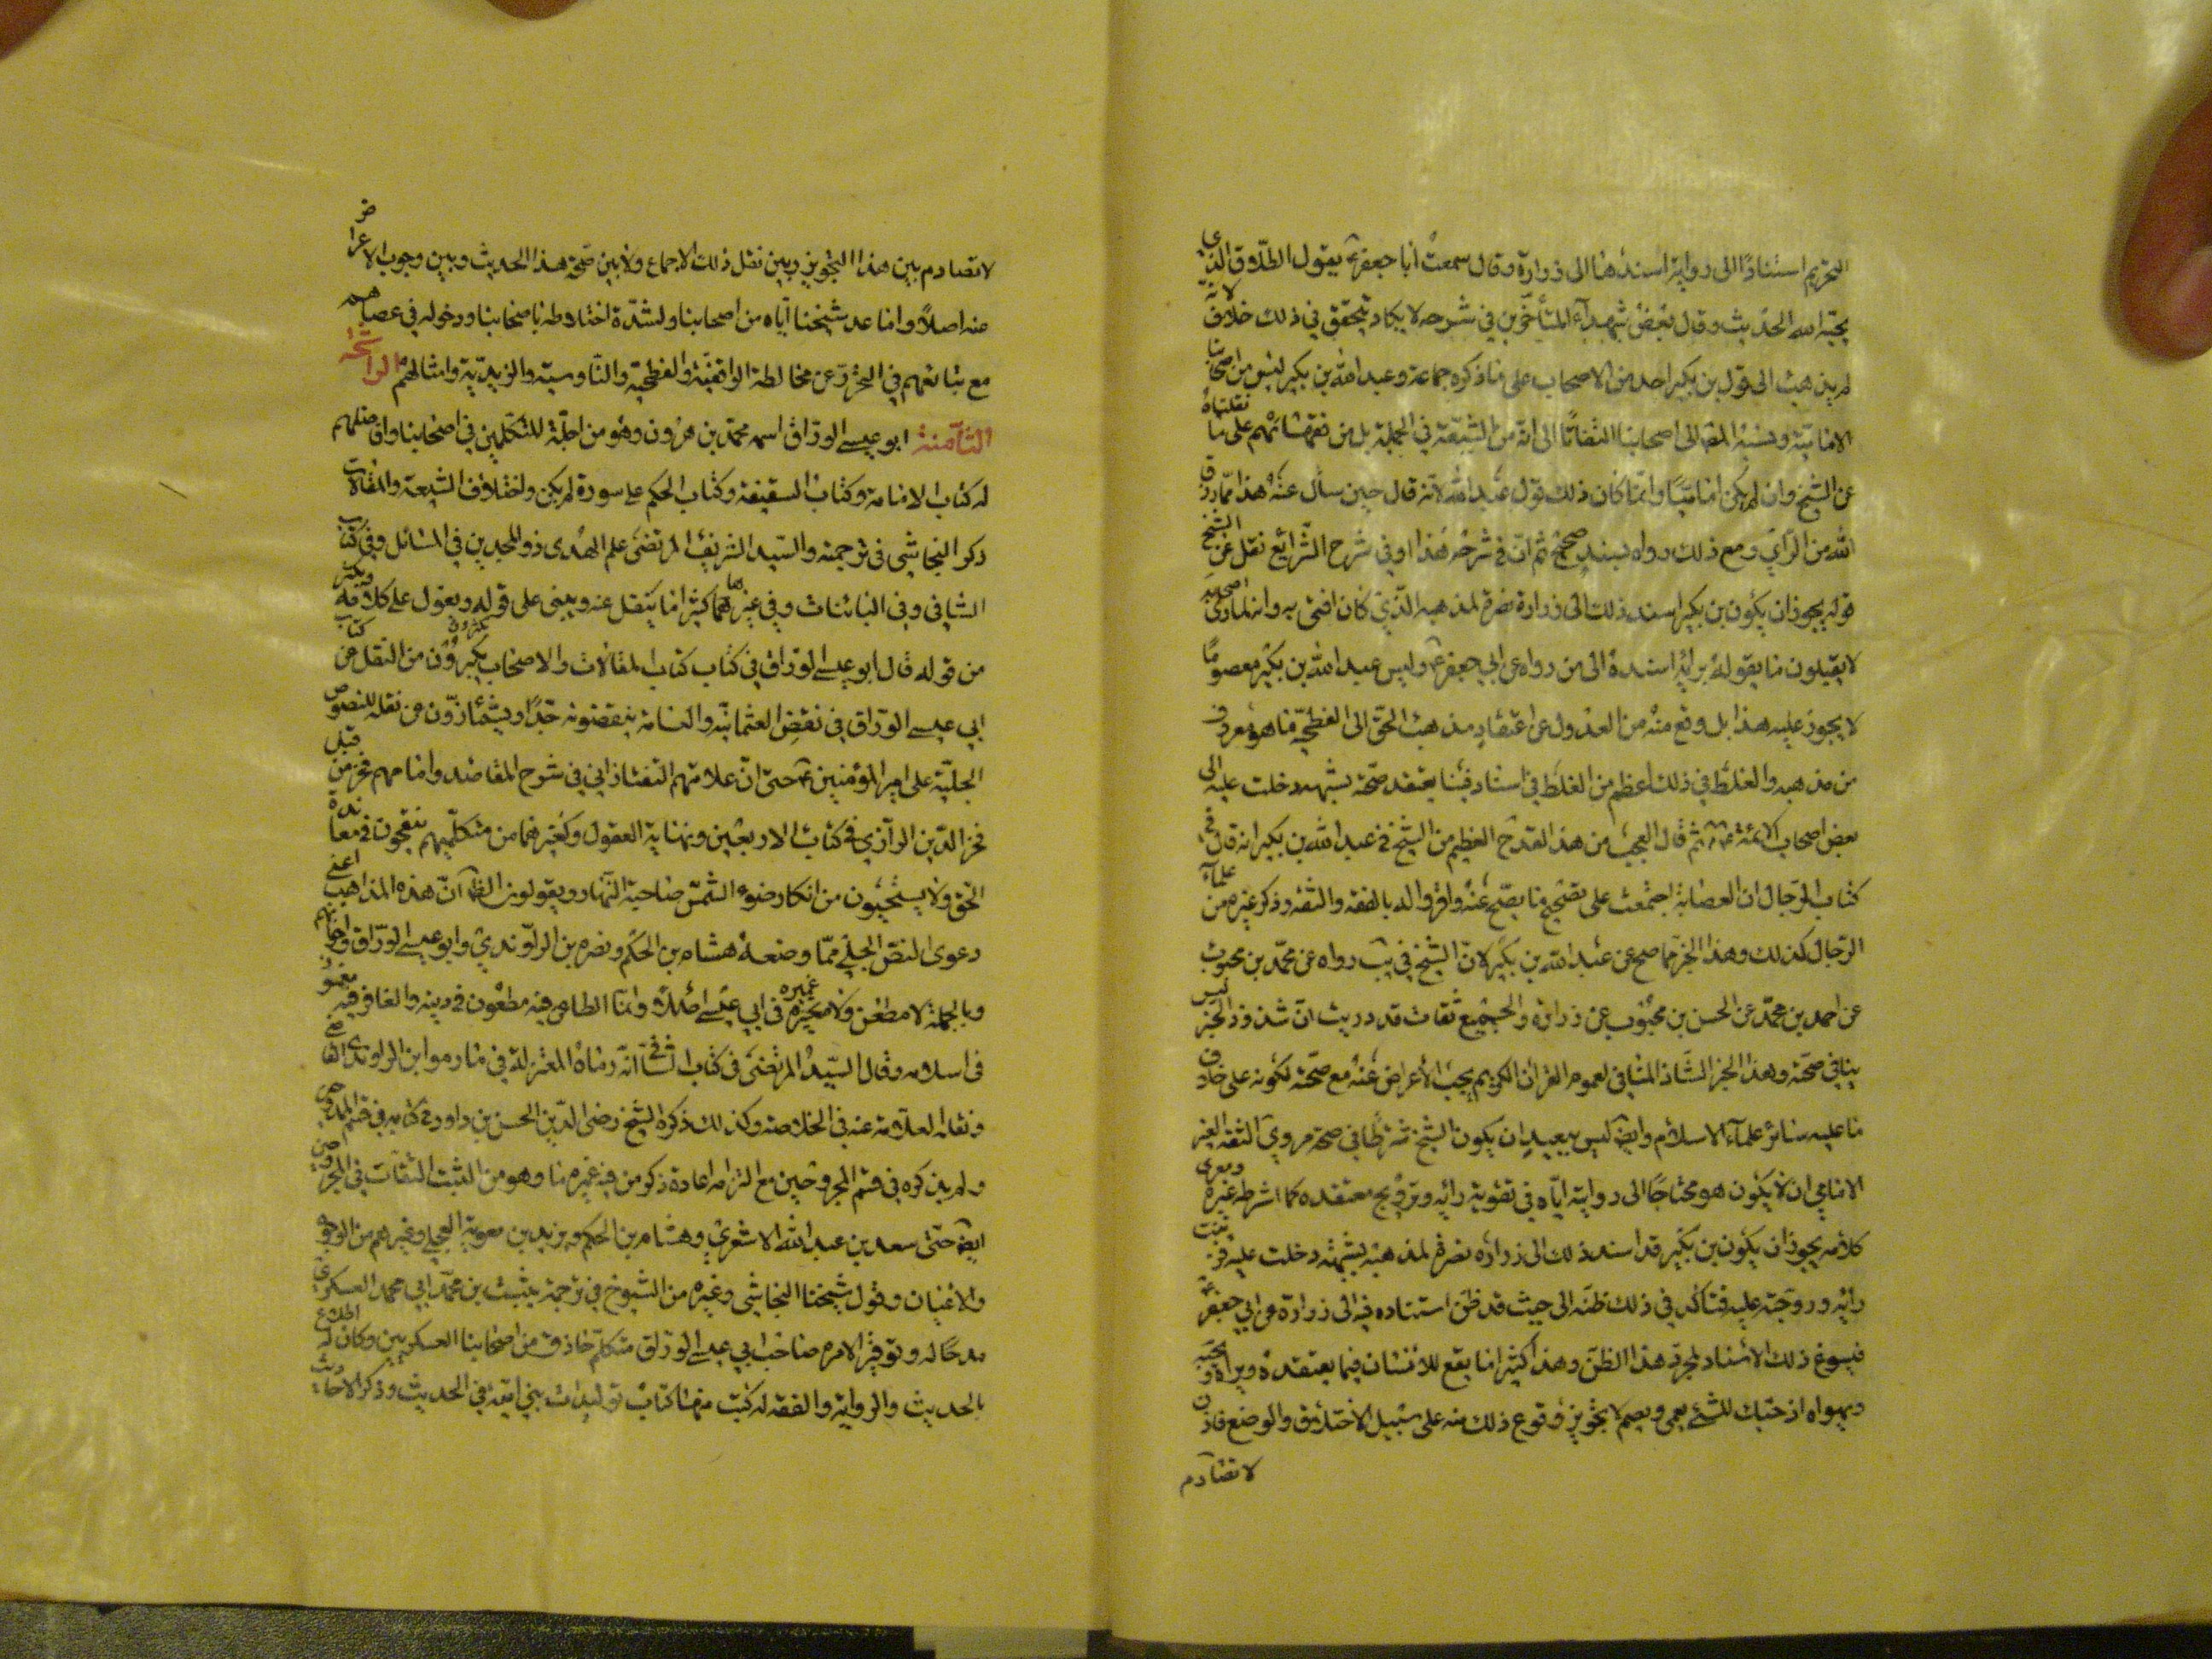 التحريم استنادًا الى رواية اسندها الى زرارة وقال سمعت أبا جعفر ع يقول الطلاق الذى
يحبّه الله الحديث وقال بعض شهداء المتأخّرين في شرحه لا يكاد يتحقق في ذلك خلاف لانّه
لم يذهب الى قول بن بكير احد من الاصحاب على ما ذكره جماعة وعبد الله بن بكير ليس من اصحابنا
الاماميّة ونسبة المقم الى اصحابنا التفاتًا الى انّه من الشيعة في الجملة بل من فقهائهم على ما نقلناه
عن الشيخ وان لم يكن اماميّا وانّما كان ذلك قول عبد الله لانّه قال حين سأل عنه هذا ممّا رزق
الله من الرأي ومع ذلك رواه بسند صحيح ثم انّ في شرحه هذا وفي شرح الشرائع نقل عن الشيخ
قوله يجوز ان يكون بن بكير اسند ذلك الى زرارة نصرة لمذهبه الّذي كان افتى به وانه لما رأى اصحابه
لا يقبلون ما يقوله برأيه اسنده الى من رواه عن ابي جعفر ع وليس عبد الله بن بكير معصومًا
لا يجوز عليه هذا بل وقع منه من العدول عن اعتقاد مذهب الحقّ الى الفطحيّة ما هو معروف
من مذهبه والغلط في ذلك اعظم من الغلط في اسناد فتيا يعتقد صحّته لشبهة دخلت عليه الى
بعض اصحاب الائمة ع ثم قال العجب من هذا القدح العظيم من الشيخ في عبد الله بن بكير انه قال في
كتاب الرّجال ان العصابة اجتمعت على تصحيح ما يصحّ عنه واقرّوا له بالفقه والثقه وذكر غيره من علماء
الرّجال كذلك وهذا الخبر مما صح عن عبد الله بن بكير لانّ الشيخ في يب رواه عن محمّد بن محبوب
عن احمد بن محمّد عن الحسن بن محبوب عن زرارة والجميع ثقات قد دريت انّ شذوذ الخبر ليس
ينافي صحّته وهذا الخبر الشّاذ المنافي لعموم القرآن الكريم يجب الأعراض عنه مع صحّته لكونه على خلاف
ما عليه سائر علماء الاسلام وايضا ليس ببعيد ان يكون الشيخ شرطا في صحة مروي الثقه الغير
الامامي ان لا يكون هو محتاجًا الى روايته ايّاه في تقوية رائه وترويج معتقده كما اشرطه غيره ومعرى
كلامه يجوز ان يكون بن بكير قد اسند ذلك الى زراره نصرة لمذهبه بشبهة دخلت عليه فزينت
رائه وروجته عليه فتأكد في ذلك ظنّه الى حيث قد ظنّ استناده فيه الى زرارة عن ابي جعفر ع
فيسوغ ذلك الأسناد لمجرّد هذا الظنّ وهذا كثيرا ما يقع للانسان فيما يعتقده ويراه ويحبّه
ويهواه اذ حبّك للشئ يعمي ويصم لا تجويز وقوع ذلك منه على سبيل الاختلاق والوضع فاذن
لا تصادم
لا تصادم بين هذا التجويز وبين نقل ذلك الاجماع ولا بين صحّة هذا الحديث وبين وجوب الاعراض
عنه اصلاً وانما عد شيخنا ايّاه من اصحابنا ولشدّة اختلاطه باصحابنا ودخوله في عصابتهم
مع تباتهم في التحرّز عن مخالطة الواقفيّة والفطحيّة والنّاوسيّة والزيديّة وامثالهم الراشحة
الثّامنة ابو عيسى الورّاق اسمه محمّد بن هرون وهو من اجلّة المتكلّمين في اصحابنا وافضلهم
له كتاب الامامة وكتاب السقيفة وكتاب الحكم على سورة لم يكن واختلاف الشيعة والمقالات
ذكر النجاشي في ترجمته والسّيد الشريف المرتضى علم الهدى ذو المجدين في المسائل وفي كتاب
الشافي وفي التبانيات وفي غيرهما كثيرا ما ينقل عنه ويبنى على قوله ويعول على كلامه ويكثر
من قوله قال ابو عيسى الورّاق في كتاب كتاب المقالات والاصحاب يكثرون من النقل عن كتاب
ابي عيسى الورّاق في نقض العثمانيّه والعامة ينقضونه جدًّا ويشمئازّون عن نقله للنصوص
الجليّة على امير المؤمنين ع حتى انّ علامتهم التفتازاني في شرح المقاصد وامامهم فخر من قبل
فخر الدّين الرازي في كتاب الاربعين ونهاية العقول وكغيرهما من متكلّميهم يتقحّمون في معاندة
الحق ولا يستحيون من انكار ضوء الشمس ضاحية النهار ويقولون الظاهر انّ هذه المذاهب اعنى
دعوى النصّ الجليّ ممّا وضعه هشام بن الحكم ونصره بن الراوندي وابو عيسى الورّاق واخوانهم
وبالجملة لا مطعن ولا مغيره في ابي عيسى اصلاً وانّما الطاعن فيه مطعون في دينه والغامز فيه مغموز
في اسلامه وقال السّيد المرتضى في كتاب الشافى انّه رماه المعتزلة في ما رموا ابن الراوندي
ونقله العلّامة عنه في الخلاصة وكذلك ذكره الشيخ رضى الدّين الحسن بن داود في كتابه في قسم الممدوحين
ولم يذكره في قسم المجروحين مع التزامه اعادة ذكر من فيه غميزه ما وهو من اثبت الثقات في المجروحين
ايضا حتى سعد بن عبد الله الاشعري وهشام بن الحكم ويزيد بن معوية العجلي وغيرهم من الوجوه
والاعيان وقول شيخنا النجاشي وغيره من الشيوخ في ترجمة يثبت بن محمّد ابي محمد العسكري
مدحًا له وتوقير الامره صاحب ابي عيسى الورّاق متكلم حاذق من اصحابنا العسكريين وكان له اطلاع
بالحديث والرواية والفقه له كتب منها كتاب توليدات بني اميّة في الحديث وذكر الاحاديث